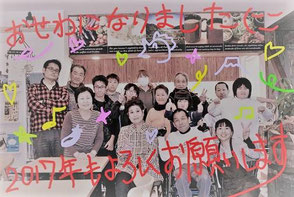 おせわになりました
2017年もよろしくお願いします